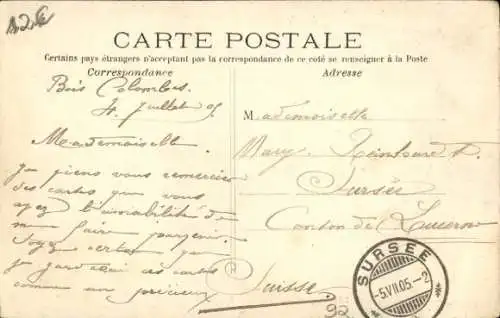 CARTE POSTALE
Certains pays étrangers n'acceptant pas la correspondance de ce coté se renseigner à la Poste
Correspondance
Adresse
Bois Colombes
4 Juillet 05
Mademoiselle
Je viens vous remercier
des cartes que vous
ayez l'amabilité de
me faire parvenir
Soyez certaine que
je garderai ces cartes
comme un précieux
Mademoiselle
Mary
Sursée
Canton de Lucerne
Suisse
SURSEE
-5.VII.05.-2